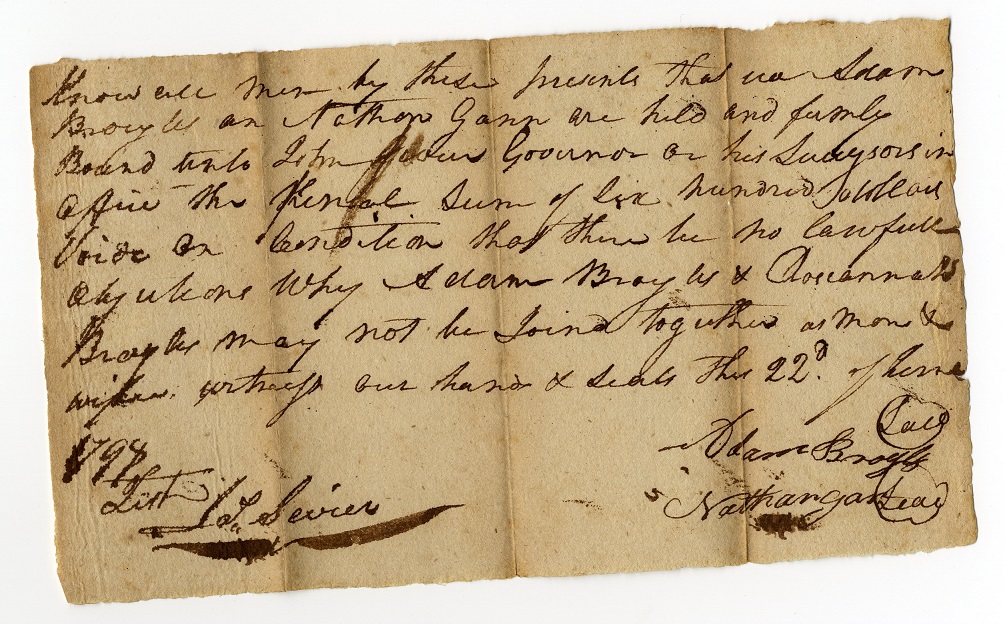 Know all men by these presents that we Adam
Broyles an Nathan Gann are held and firmly
Bound unto John Sevier Governor or his Sucysors in
office the Penal Sum of Six hundred Dollars
Void on Condition that there be no lawfull
objections Why Adam Broyles & Roseannah
Broyles may not be Joind together as man &
wife witness our hands & seals this 22d. of June
1798
Test
Jas. Sevier
Adam Broyls Seal
Nathan gan Seal